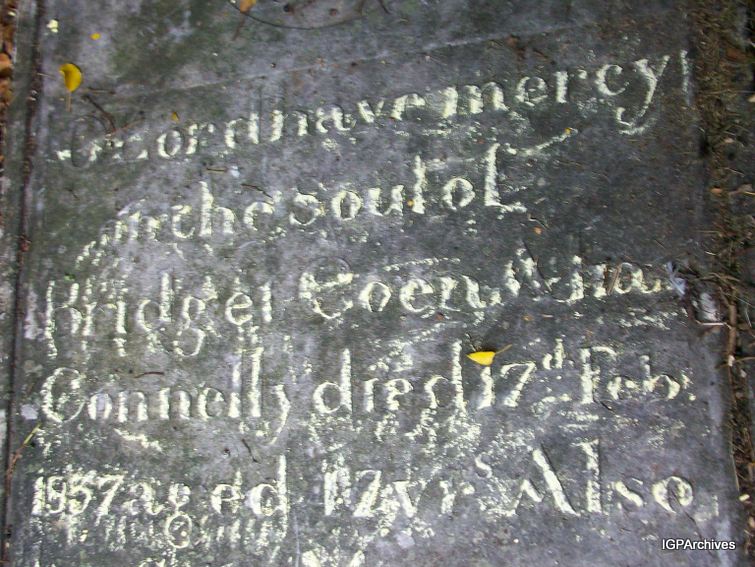 O Lord have mercy
on the soul of
Bridget Coen
Connelly died 17d Feb.
1957 aged 72 yrs Also
IGPArchives